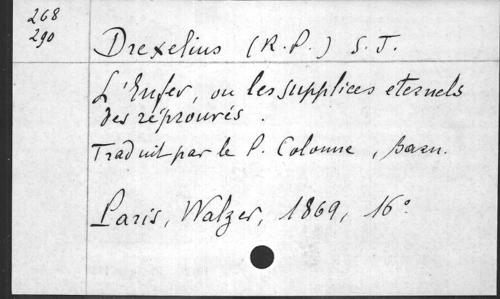 268
290
Drexelius (R. P.) S. J.
L'Enfer, ou les supplices eternels
des réprouvés.
Traduit par le P. Colonne, barn.
Paris, Walzer, 1869, 16°